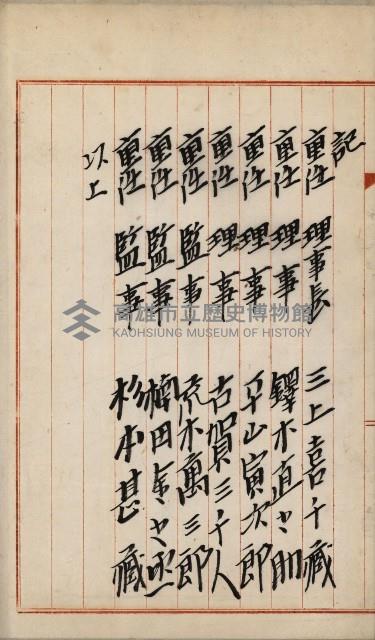 記
重任 理事長 三上喜千藏
重任 理事 鐸木直之助
重任 理事 平山寅次郎
重任 理事 古賀三千人
重任 監事 荒木萬三郎
重任 監事 楠田金之丞
重任 監事 杉本甚藏
以上
高雄市立歷史博物館
KAOHSIUNG MUSEUM OF HISTORY